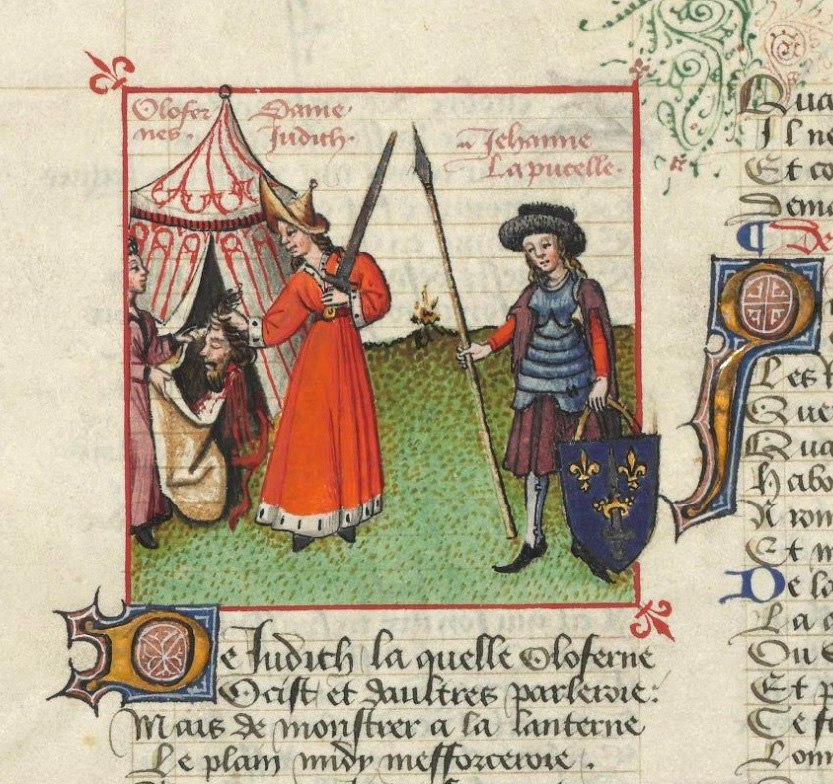 Olofer
nes.
Dame
Judith.
Jehanne
La pucelle.
De Judith la quelle Oloferne
Ocist et daultres parleroie:
Mais de monstrer a la lanterne
Le plain midy mefforceroie.
Qua
Il ne
Et co
Dema
De
P
Les t
Que
Qua
habo
A rom
Et m
De la
La c
Ou
Et p
Ce f
Lom